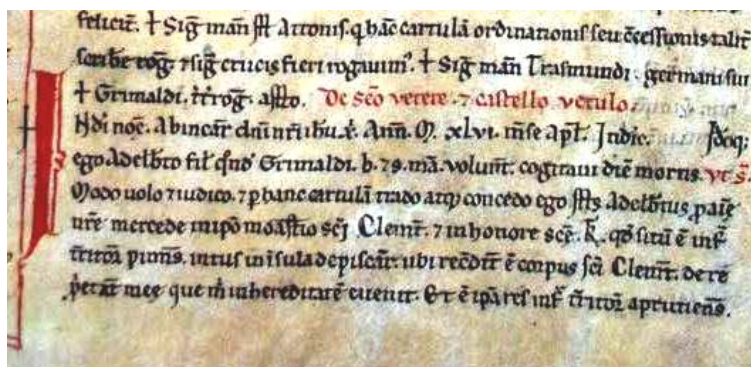 feliciť. † Sig̅ man̅ s̅s̅ Attonis. q̇ hāc cartulā ordinationis seu c̄cessionis taliť
scribe rog̅ ⁊ sig̅ crucis fieri rogauim᷒. † Sig̅ man̅ Trasmundi. gēmani sui
† Grimaldi. rog̅. De sc̄o uetere. ⁊ castello uetulo.
H dī noē. Ab incar̄ dn̄i nr̄i ihu x̄. Ann̄. M̄. xlvi. m̄se ap̄l. Indic̄.
ego Adelb̄to fil̄ q̄nd̄ Grimaldi. b. ⁊ s. mā. volunt̄. cogitaui diē mortis. ut s̄.
Modo uolo ⁊ iudico. ⁊ p̱ hanc cartulā trado atq; concedo ego s̄s̄ Adelb̄tus, p̱ aīe
nr̄e mercede in ip̄o moast̄io sc̄i Clem̄t. ⁊ in honore sc̄e. qd̄ sitū ē inf̄
t̄ritor̄ pinn̄s. intus in īsula de piscar̄. ubi recōdit̄ ē corpus sc̄i Clem̄t. de re
p̱etat̄ mee que m̄ in hereditatē euenit. Et ē ip̄a res inf̄ t̄ritor̄ aprutiens̄.